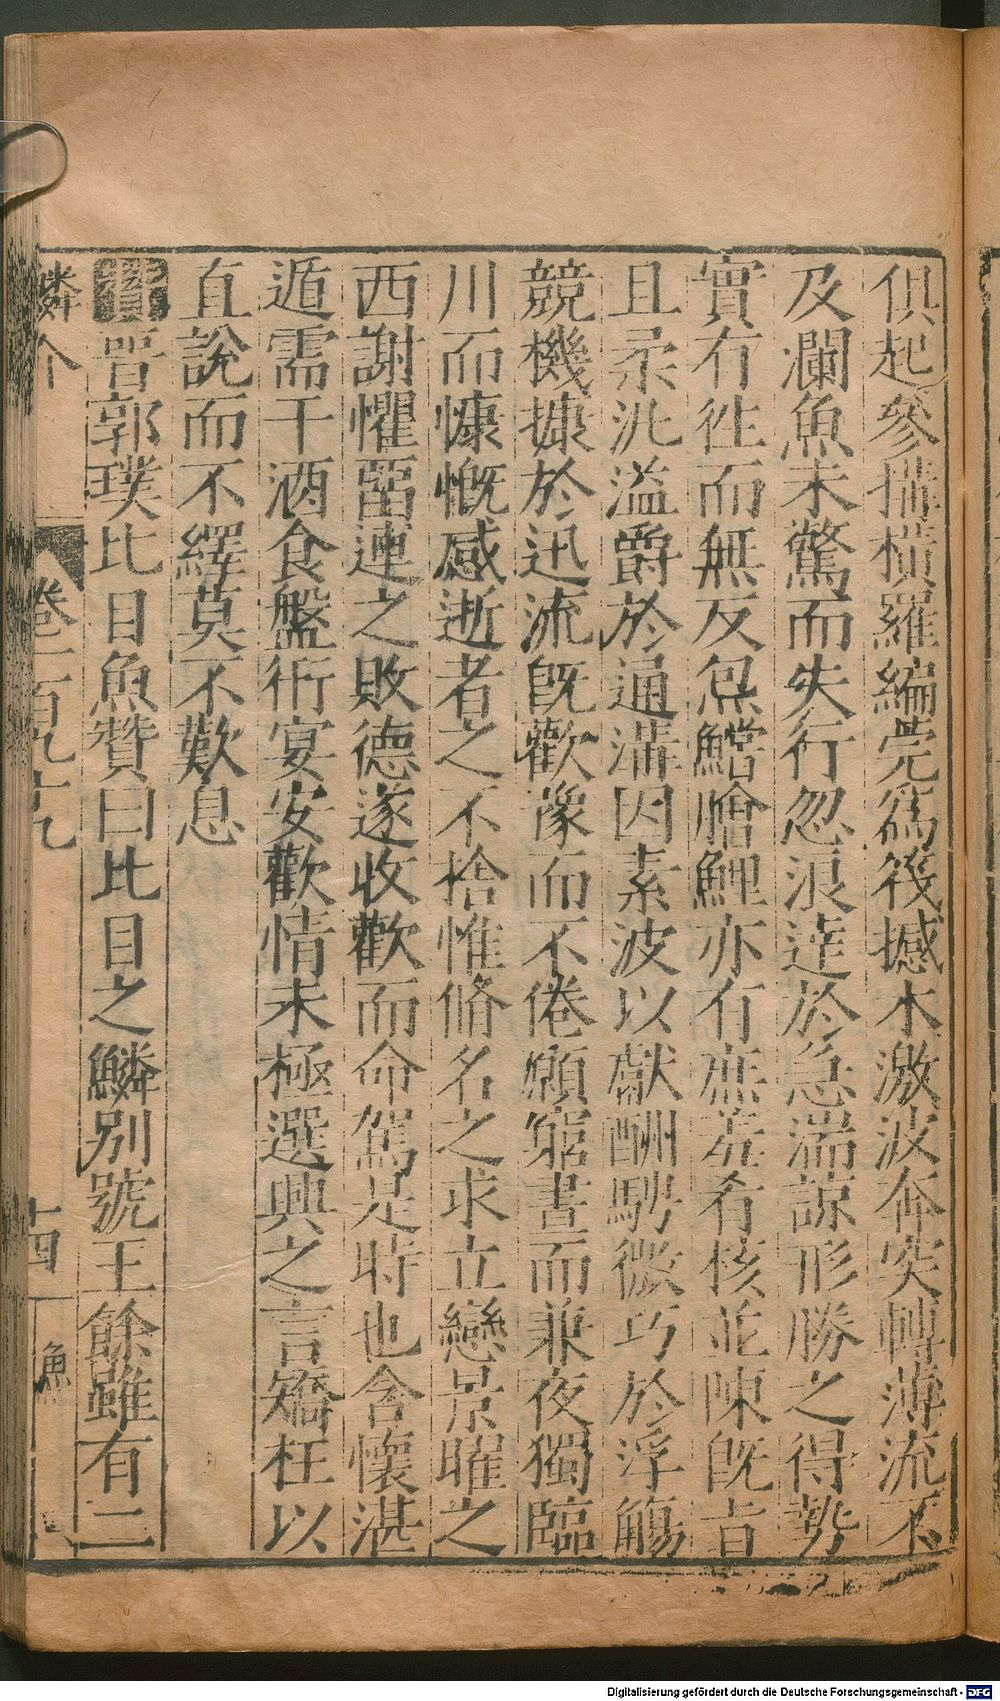 俱起參搆橫羅編莞爲筏撼水激波奔突轉薄流不
及瀾魚未驚而失行忽浪達於急湍諒形勝之得勢
實有徃而無反炰鱨膾鯉亦有庶羞肴核並陳旣旨
且柔洮溢爵於通溝因素波以獻酬騁微巧於浮觴
競機捷於迅流旣歡豫而不倦願窮晝而兼夜獨臨
川而慷慨感逝者之不捨惟脩名之求立戀景曜之
西謝懼留連之敗德遂收歡而命駕是時也含懷湛
遁需干酒食盤衎宴安歡情未極選興之言矯枉以
直說而不繹莫不歎息
贊晉郭璞比目魚贊曰比目之鱗別號王餘雖有二
鱗介 卷一百九十九 十四 魚
Digitalisierung gefördert durch die Deutsche Forschungsgemeinschaft - DFG